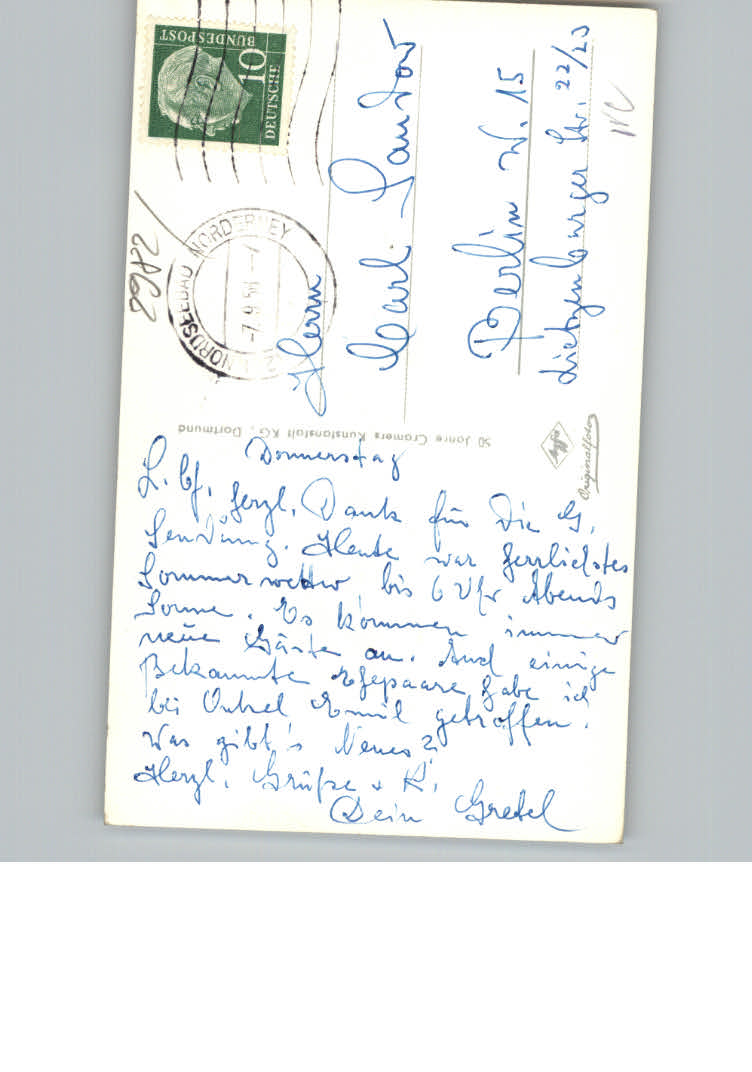 DEUTSCHE
BUNDESPOST
10
NORDSEEBAD NORDERNEY
-7.9.
2982
Herrn
Carl Sandow
Berlin W. 15
Lietzenburger Str. 22/23
50 Jahre Cramers Kunstanstalt KG., Dortmund
Agfa
Originalfoto
Donnerstag
L. Cf, herzl. Dank für Die G.
Sendung. Heute war herrlichstes
Sommerwetter, bis 6 Uhr Abends
Sonne. Es kommen immer
neue Gäste an. Auch einige
Bekannte Ehepaare habe ich
bei Onkel Emil getroffen.
Was gibt's Neues?
Herzl. Grüße + K.
Dein Gretel